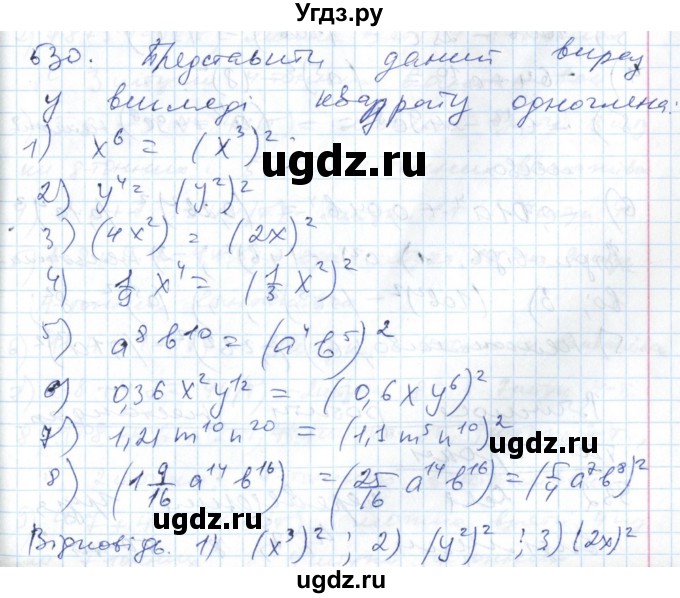 Угдз.ру
630. Представить даний вираз
у вигляді квадрату одночлена:
1) x⁶ = (x³)²
ugdz.ru
2) y⁴ = (y²)²
3) (4x²) = (2x)²
ugdz.ru
4) 1/9 x⁴ = (1/3 x²)²
5) a⁸ b¹⁰ = (a⁴ b⁵)²
6) 0,36 x² y¹² = (0,6 x y⁶)²
7) 1,21 m¹⁰ n²⁰ = (1,1 m⁵ n¹⁰)²
ugdz.ru
8) (1 9/16 a¹⁴ b¹⁶) = (25/16 a¹⁴ b¹⁶) = (5/4 a⁷ b⁸)²
ugdz.ru
Відповідь. 1) (x³)² ; 2) (y²)² ; 3) (2x)²
ugdz.ru